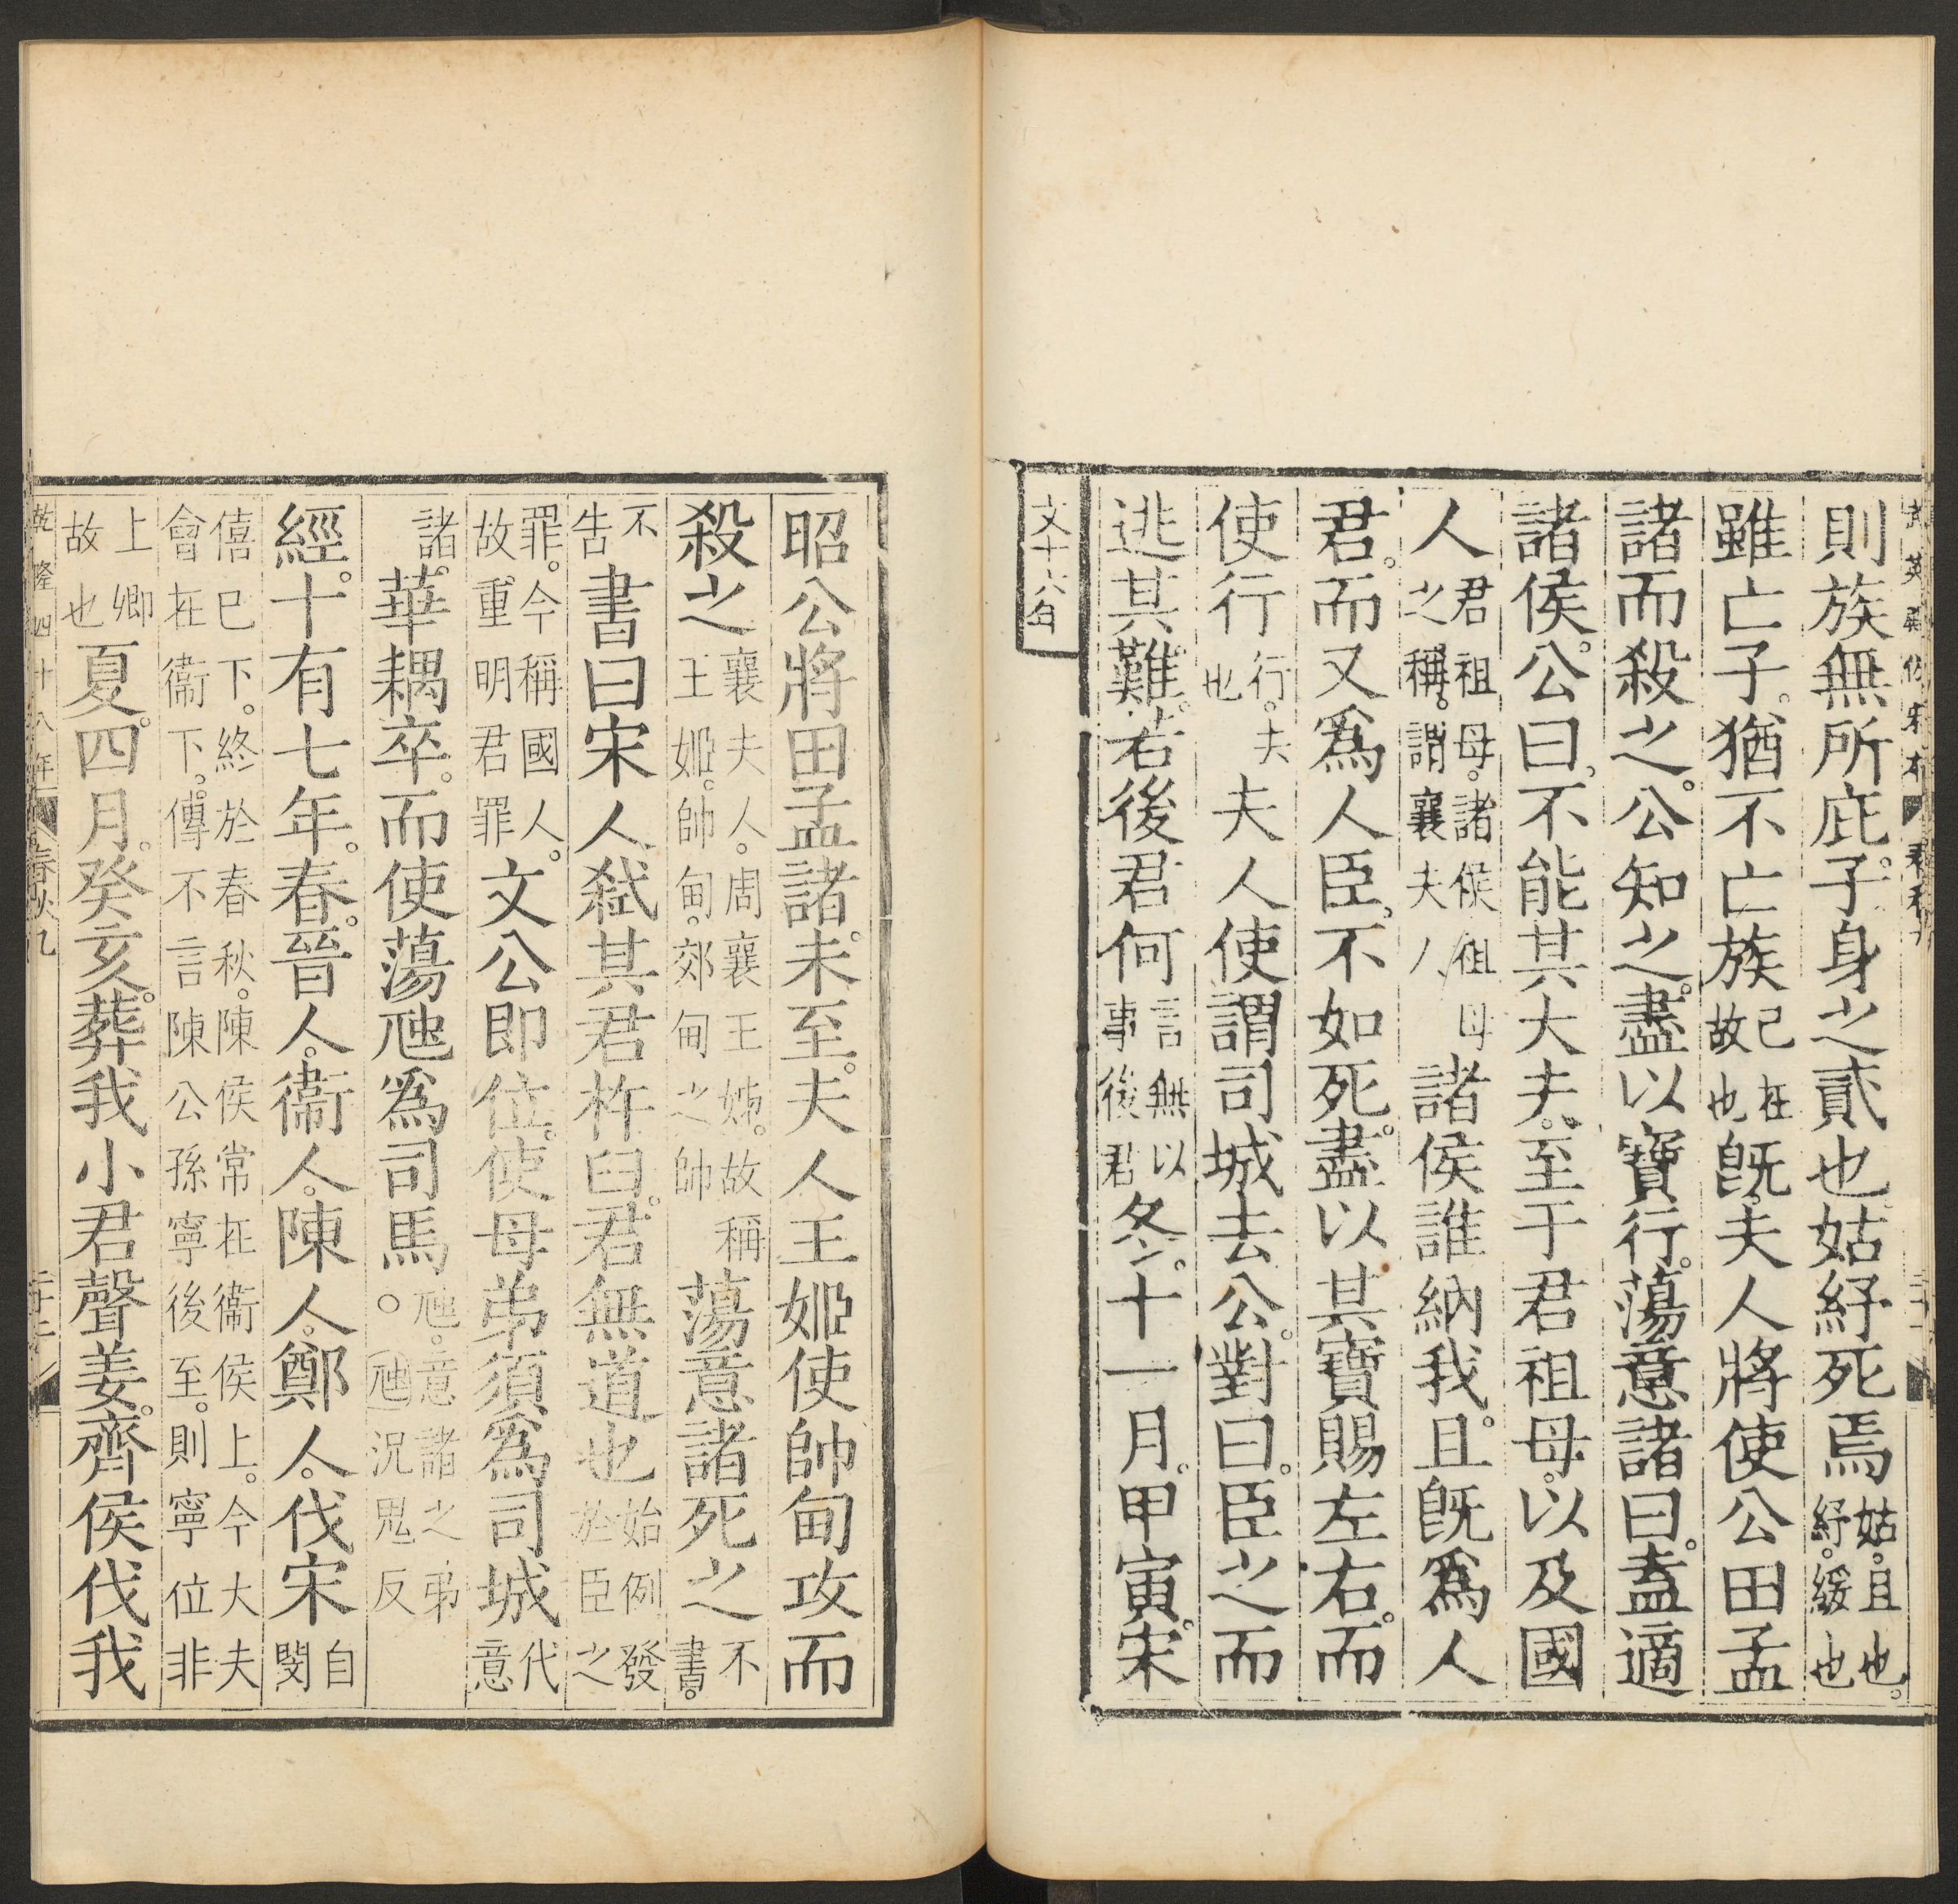 則族無所庇。子身之貳也。姑紓死焉姑。且也。紓。緩也
雖亡子。猶不亡族己在故也既。夫人將使公田孟
諸而殺之。公知之。盡以寶行。蕩意諸曰。盍適
諸侯。公曰。不能其大夫。至于君祖母。以及國
人君祖母。諸侯祖母之稱。謂襄夫人諸侯誰納我。且既爲人
君。而又爲人臣。不如死。盡以其寶賜左右。而
使行行。夫也夫人使謂司城去公。對曰。臣之而
逃其難。若後君何言無以事後君冬。十一月。甲寅。宋
文十六年
昭公將田孟諸。未至。夫人王姬使帥甸攻而
殺之襄夫人。周襄王姊。故稱王姬。帥甸。郊甸之帥蕩意諸死之不書。
不告書曰宋人弒其君杵臼。君無道也始例發於臣之
罪。今稱國人。故重明君罪文公即位。使母弟須爲司城代意
諸。華耦卒。而使蕩虺爲司馬。虺。意諸之弟○虺況鬼反
經。十有七年。春。晉人。衞人。陳人。鄭人。伐宋自閔
僖已下。終於春秋。陳侯常在衞侯上。今大夫會在衞下。傳不言陳公孫寧後至。則寧位非
上卿故也夏。四月。癸亥。葬我小君聲姜。齊侯伐我
乾隆四十八年 春秋九